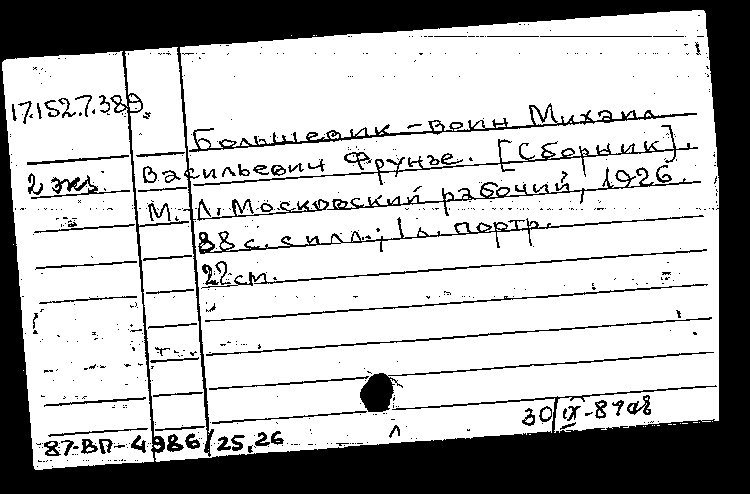 17.152.7.389.
Большевик-воин Михаил
2 экз. Васильевич Фрунзе. [Сборник].
М.-Л. Московский рабочий, 1926.
88 с. с илл.; 1 л. портр.
22 см.
87-ВП-4986/25,26